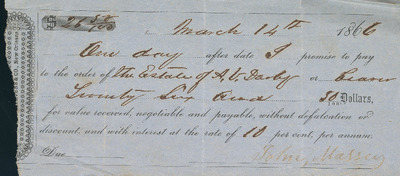 $26 50/100 March 14th 1866
One day after date I promise to pay
to the order of The Estate of A. V. Darby or bearer
Twenty Six and 50/100 Dollars,
for value received, negotiable and payable, without defalcation or
discount, and with interest at the rate of 10 per cent, per annum.
Due John Massey